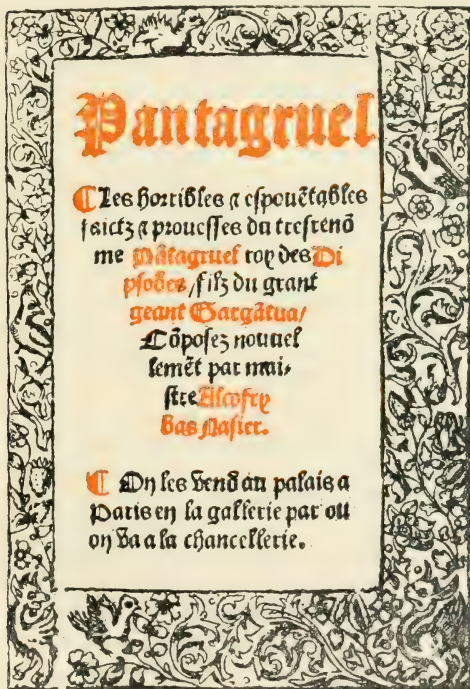 Pantagruel
¶ Les horribles ⁊ espouẽtables
faictz ⁊ prouesses du tresrenõ
me Pãtagruel roy des Di
psodes / filz du grant
geant Gargãtua /
Cõposez nouuel
lemẽt par mai-
stre Alcofry
bas Nasier.
¶ On les vend au palais a
Paris en la gallerie par ou
on va a la chancellerie.